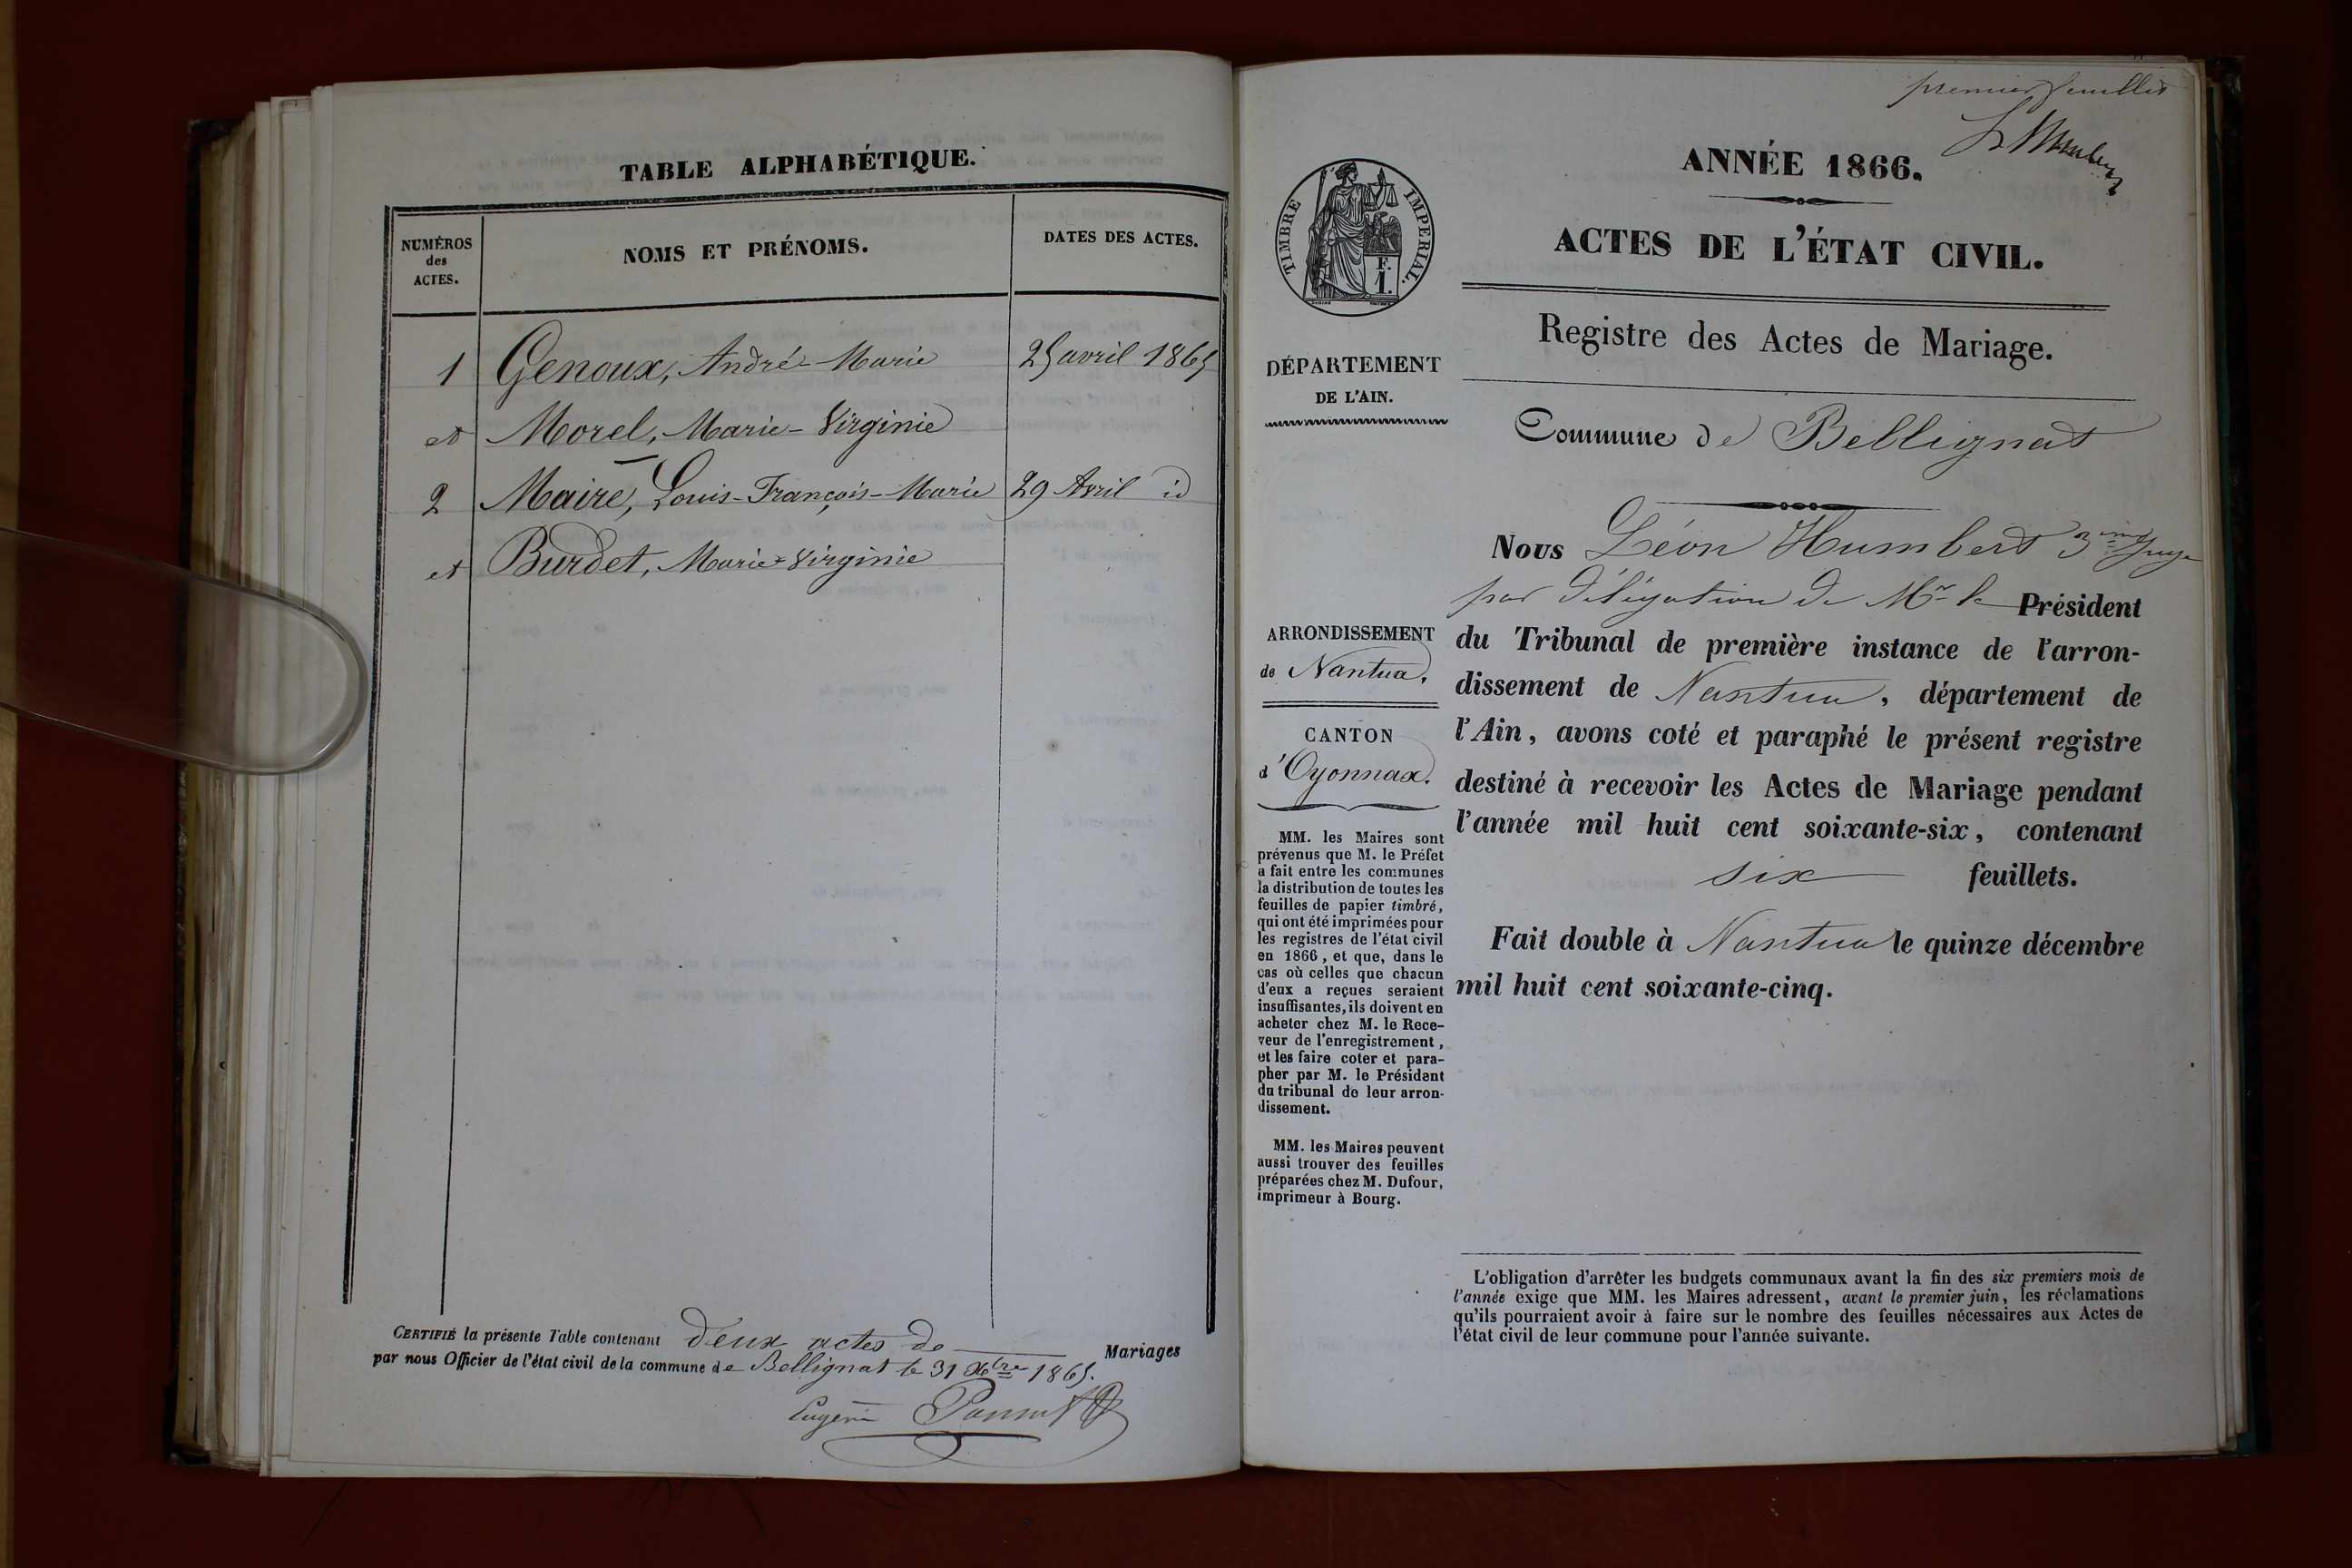 TABLE ALPHABÉTIQUE.
NUMÉROS
des
ACTES.
NOMS ET PRÉNOMS.
DATES DES ACTES.
1 Genoux, André-Marie 25 avril 1865
et Morel, Marie-Virginie
2 Maire, Louis-François-Marie 29 Avril id
et Burdet, Marie-Virginie
CERTIFIÉ la présente Table contenant deux actes de Mariages
par nous Officier de l'état civil de la commune de Bellignat le 31 Xbre 1865.
premier feuillet
ANNÉE 1866.
ACTES DE L'ÉTAT CIVIL.
Registre des Actes de Mariage.
Commune de Bellignat
TIMBRE IMPÉRIAL.
F.
1.
DÉPARTEMENT
DE L'AIN.
ARRONDISSEMENT
de Nantua.
CANTON
d'Oyonnax.
MM. les Maires sont
prévenus que M. le Préfet
a fait entre les communes
la distribution de toutes les
feuilles de papier timbré,
qui ont été imprimées pour
les registres de l'état civil
en 1866, et que, dans le
cas où celles que chacun
d'eux a reçues seraient
insuffisantes, ils doivent en
acheter chez M. le Rece-
veur de l'enregistrement,
et les faire coter et para-
pher par M. le Président
du tribunal de leur arron-
dissement.
MM. les Maires peuvent
aussi trouver des feuilles
préparées chez M. Dufour,
imprimeur à Bourg.
Nous Léon Humbert 3ime Juge
par délégation de Mr le Président
du Tribunal de première instance de l'arron-
dissement de Nantua, département de
l'Ain, avons coté et paraphé le présent registre
destiné à recevoir les Actes de Mariage pendant
l'année mil huit cent soixante-six, contenant
six feuillets.
Fait double à Nantua le quinze décembre
mil huit cent soixante-cinq.
L'obligation d'arrêter les budgets communaux avant la fin des six premiers mois de
l'année exige que MM. les Maires adressent, avant le premier juin, les réclamations
qu'ils pourraient avoir à faire sur le nombre des feuilles nécessaires aux Actes de
l'état civil de leur commune pour l'année suivante.